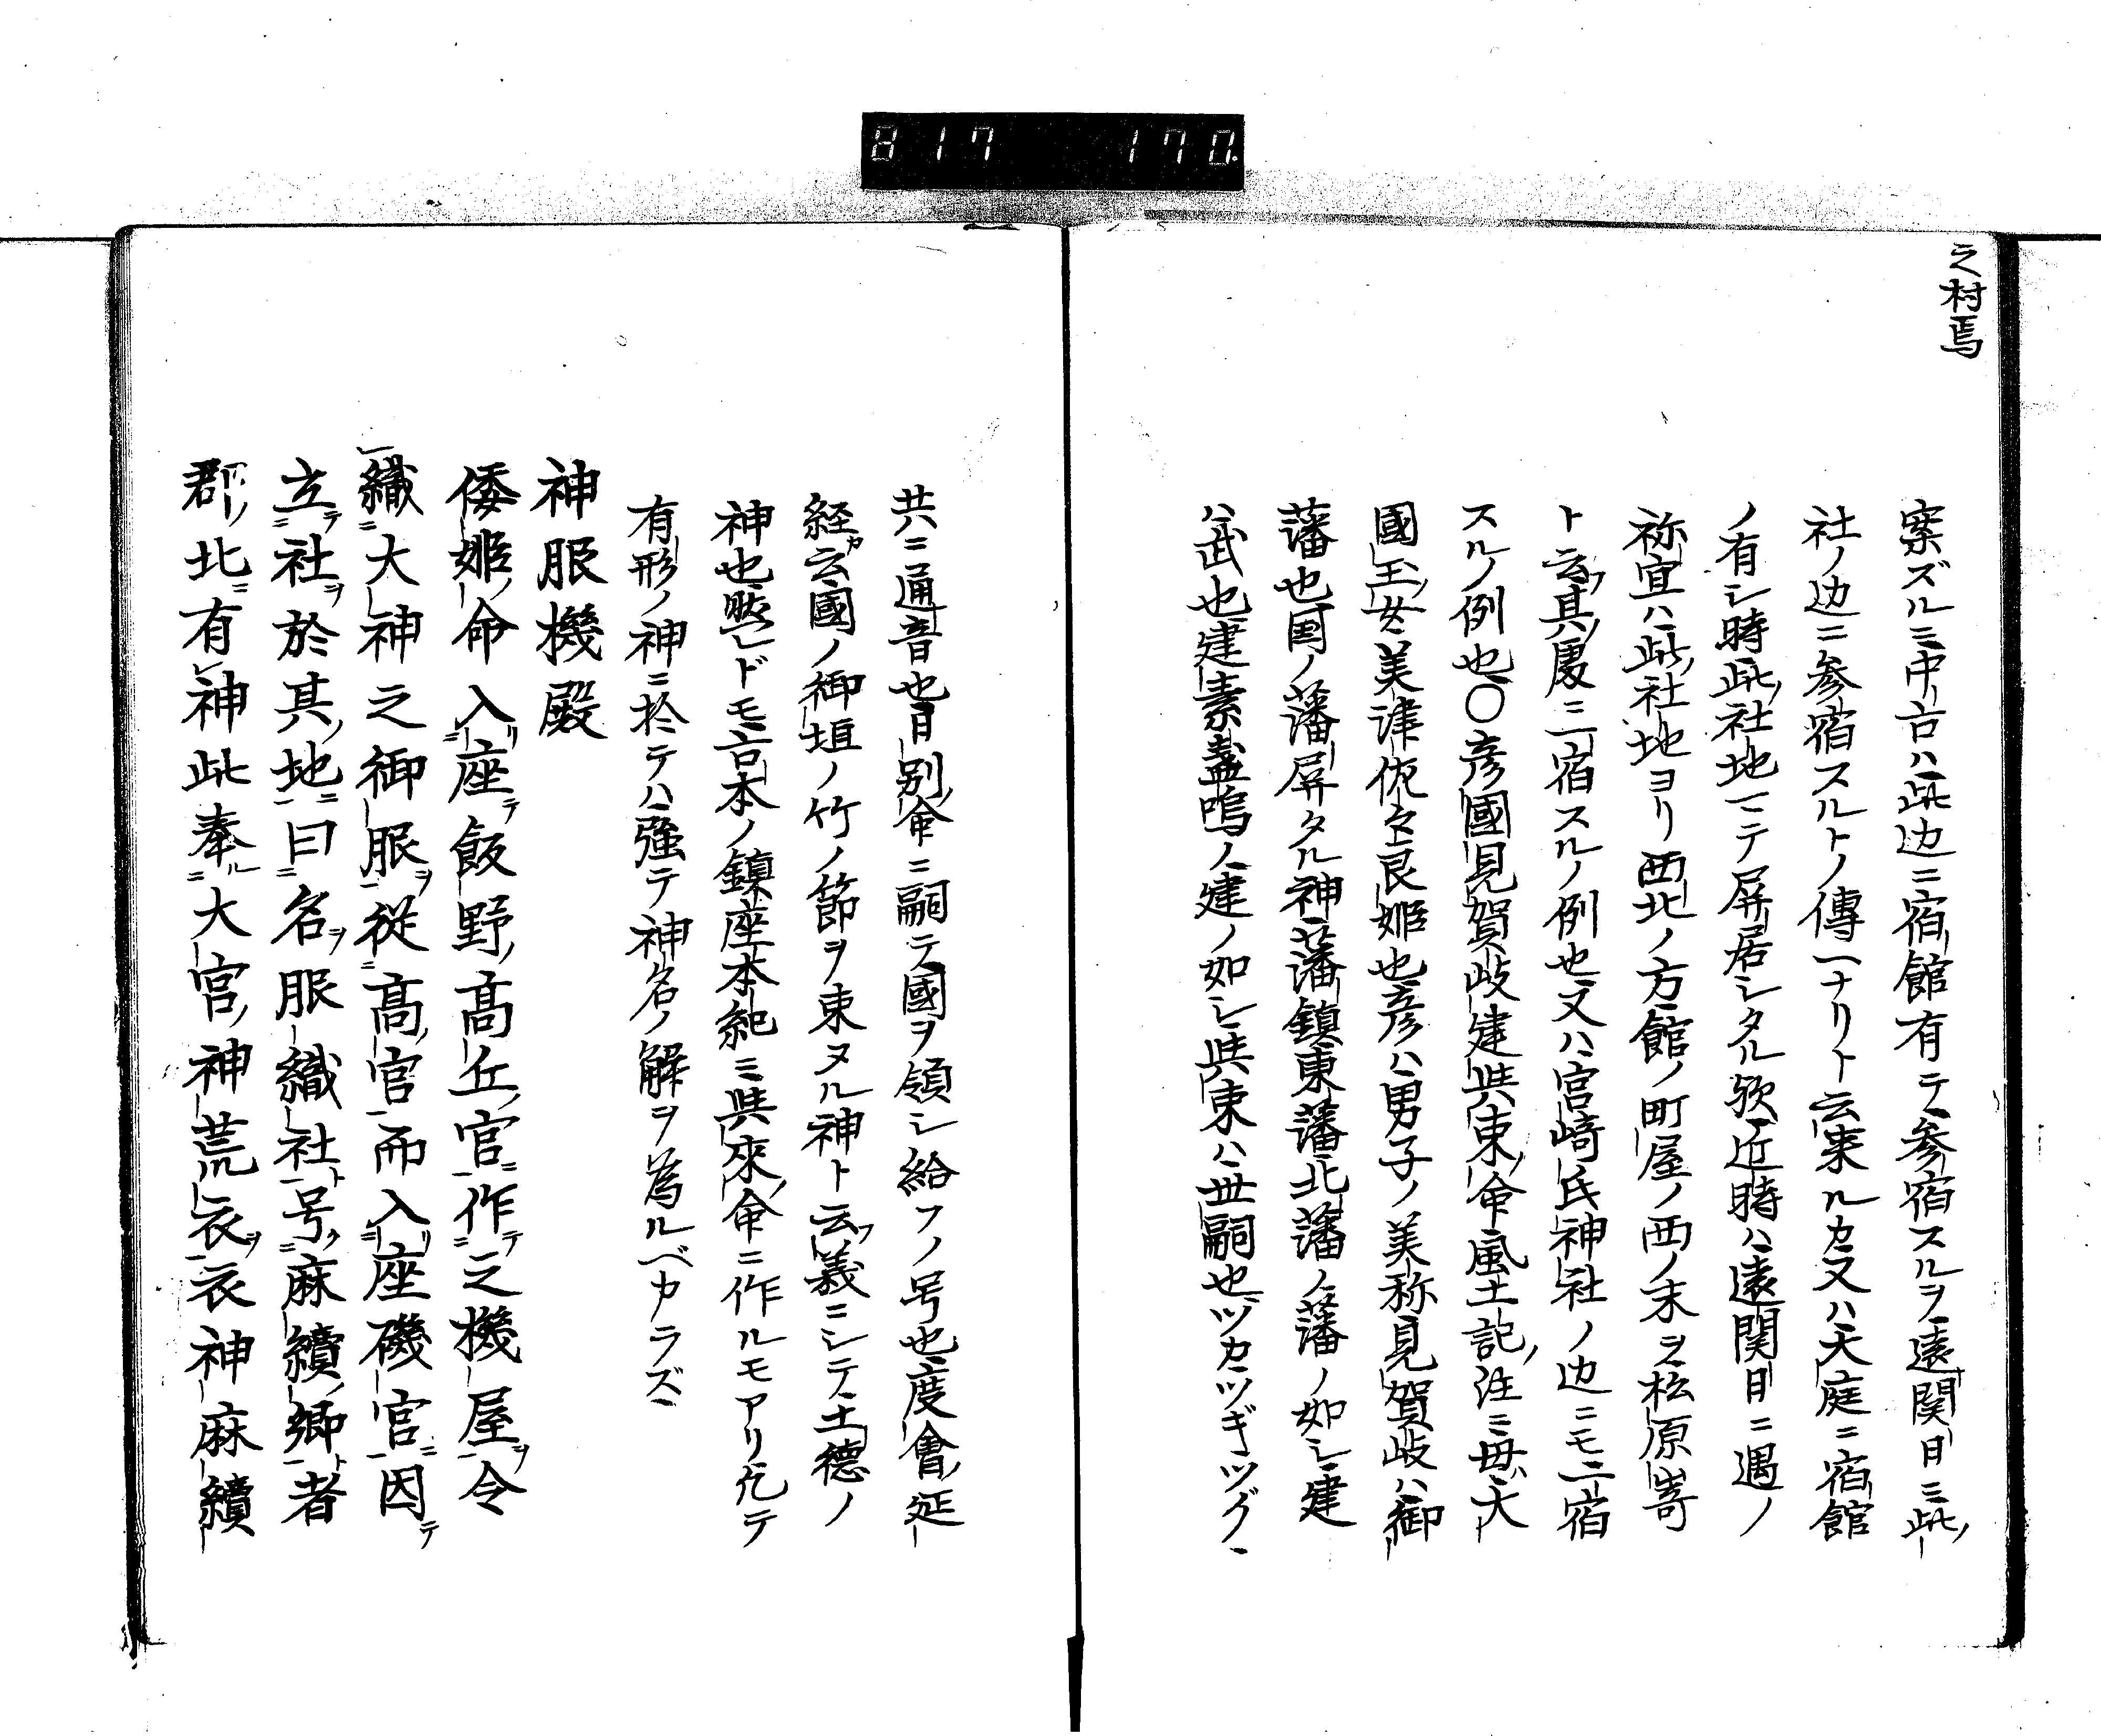 817 170.
之村焉
案ズルニ中古ハ此辺ニ宿館有テ参宿スルヲ遠関日ニ此
社ノ辺ニ参宿スルトノ傳一ナリト云来ルカ又ハ大庭ニ宿館
ノ有シ時此社地ニテ屏居シタル歟近時ハ遠関日ニ遇ノ
祢宜ハ此社地ヨリ西北ノ方館ノ町屋ノ西ノ末ヲ松原嵜
ト云其処ニ宿スルノ例也又ハ宮﨑氏神社ノ辺ニモ二宿
スルノ例也〇彦國見賀岐建與束命風土記注ニ毋大
國玉女美津佐々良姫也彦ハ男子ノ美称見賀岐ハ御
藩也国ノ藩屏タル神藩鎮東藩北藩ノ藩ノ如シ建
ハ武也建素盞嗚ノ建ノ如シ與束ハ世嗣也ヅカニツギツグ
共ニ通音也日別命ニ嗣テ國ヲ領シ給フノ号也度會延
経云國ノ御垣ノ竹ノ節ヲ束ヌル神ト云義ニシテ土德ノ
神也然レドモ古本ノ鎮座本紀ニ與來命ニ作ルモアリ凢テ
有形ノ神ニ於テハ強テ神名ノ解ヲ為ルベカラズ
神服機殿
倭姫命入座飯野高丘宮作之機屋令
織大神之御服従高宮而入座磯宮因
立社於其地曰名服織社号麻續郷者
郡北有神此奉大宮神荒衣衣神麻續